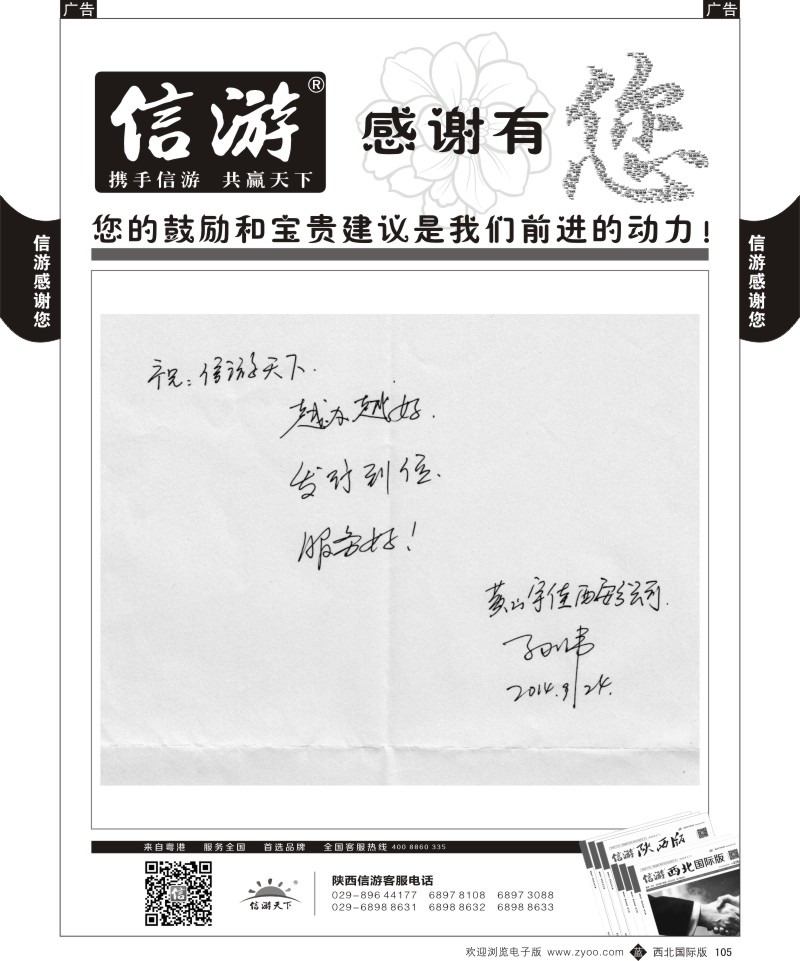 广告
广告
信游®
携手信游 共赢天下
感谢有您
您的鼓励和宝贵建议是我们前进的动力！
信游感谢您
信游感谢您
祝：信游天下.
越办越好.
发行到位.
服务好！
黄山宇佳西安分公司.
2014.9/24.
来自粤港 服务全国 首选品牌 全国客服热线 400 8860 335
信游 陕西版
信游 西北国际版
信游
信游天下
陕西信游客服电话
029-896 44177 6897 8108 6897 3088
029-6898 8631 6898 8632 6898 8633
欢迎浏览电子版 www.zyoo.com 蓝 西北国际版 105